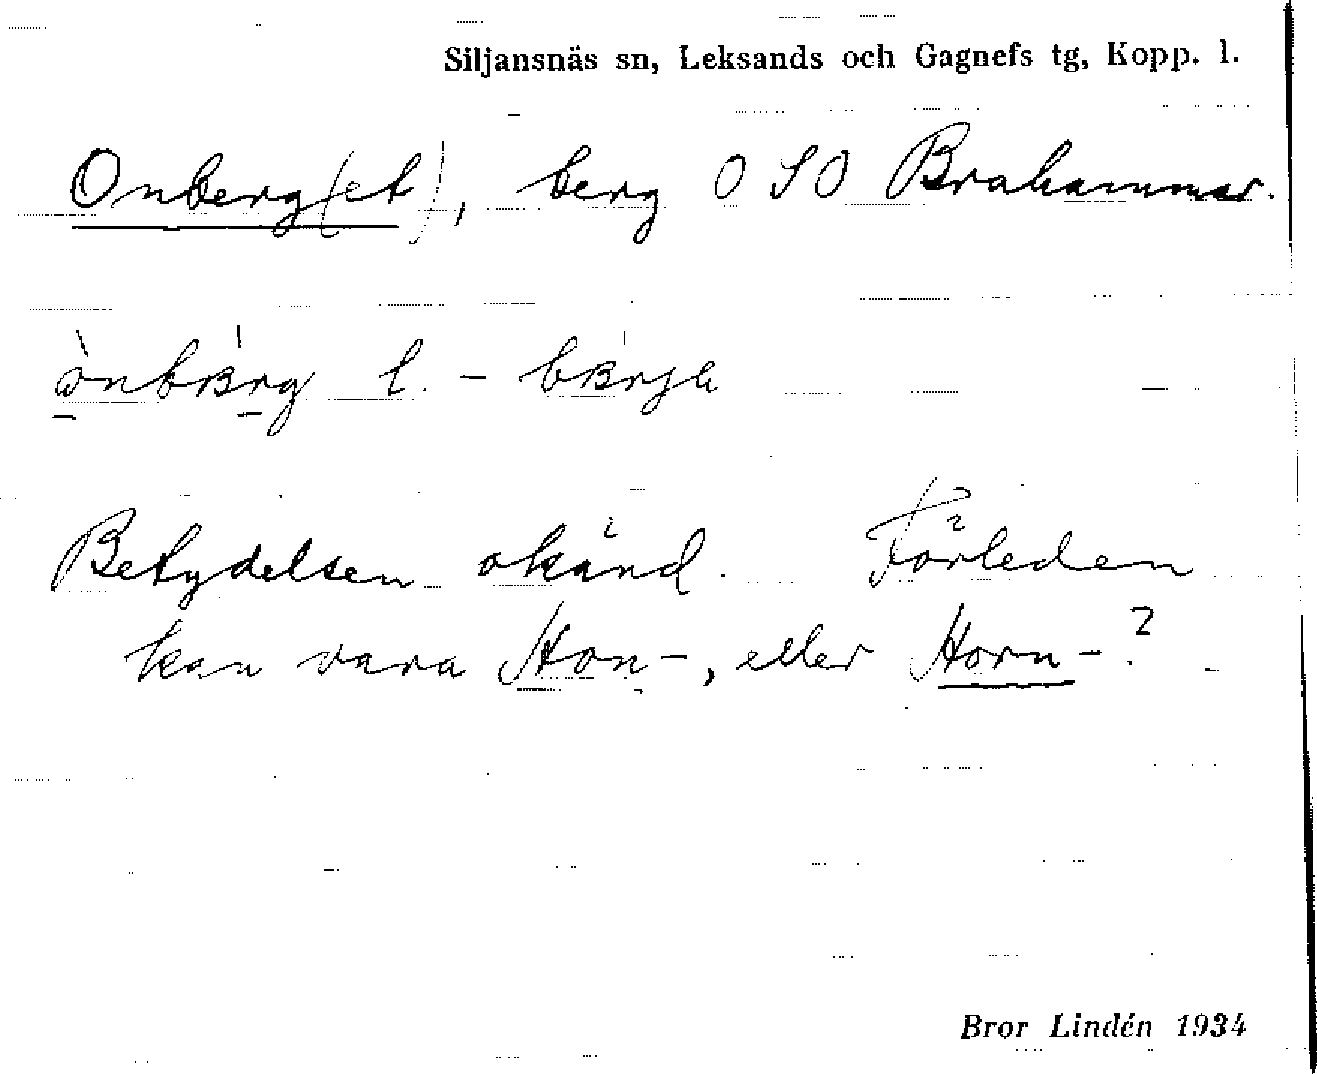 Siljansnäs sn, Leksands och Gagnefs tg, Kopp. l.
Onberg(et), berg O S O Brahammar.
l.
Betydelsen okänd. Förleden
kan vara Hon-, eller Horn-?
Bror Lindén 1934